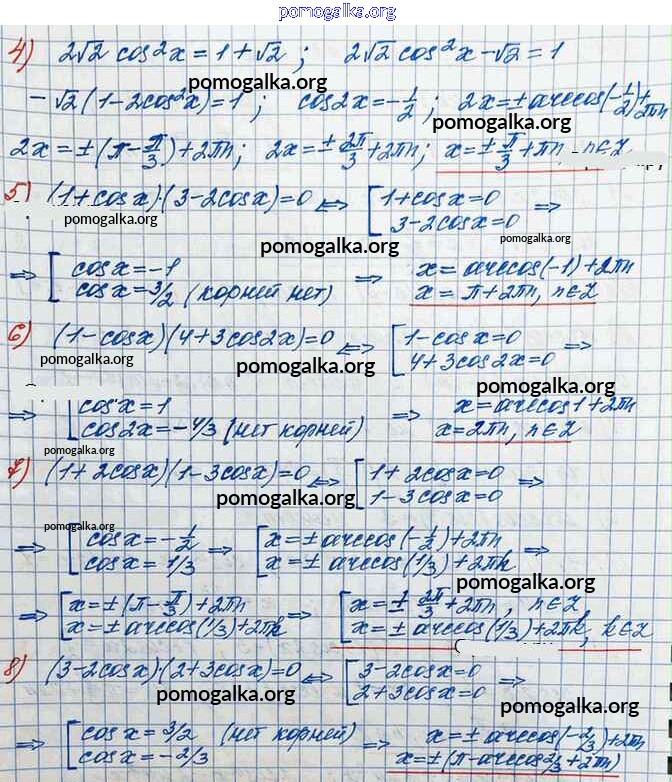 pomogalka.org
4) 2√2 cos²x = 1+√2 ; 2√2 cos²x-√2 = 1
pomogalka.org
-√2(1-2cos²x)=1 ; cos2x=-1/2 ; 2x=±arccos(-1/2)+2πn
pomogalka.org
2x=±(π-π/3)+2πn; 2x=±2π/3+2πn; x=±π/3+πn n∈Z
5) (1+cosx)·(3-2cosx)=0 ⇔ [1+cosx=0
3-2cosx=0 ⇒
pomogalka.org
pomogalka.org
pomogalka.org
⇒ [cosx=-1 ⇒ x=arccos(-1)+2πn
cosx=3/2 (корней нет) x=π+2πn, n∈Z
6) (1-cosx)(4+3cos2x)=0 ⇔ [1-cosx=0
4+3cos2x=0 ⇒
pomogalka.org
pomogalka.org
pomogalka.org
⇒ [cosx=1 ⇒ x=arccos1+2πn
cos2x=-4/3 (нет корней) x=2πn, n∈Z
pomogalka.org
7) (1+2cosx)(1-3cosx)=0 ⇔ [1+2cosx=0
1-3cosx=0 ⇒
pomogalka.org
pomogalka.org
⇒ [cosx=-1/2 ⇒ [x=±arccos(-1/2)+2πn
cosx=1/3 x=±arccos(1/3)+2πk ⇒
pomogalka.org
⇒ [x=±(π-π/3)+2πn ⇒ [x=±2π/3+2πn, n∈Z
x=±arccos(1/3)+2πk x=±arccos(1/3)+2πk, k∈Z
8) (3-2cosx)(2+3cosx)=0 ⇔ [3-2cosx=0
2+3cosx=0 ⇒
pomogalka.org
pomogalka.org
⇒ [cosx=3/2 (нет корней) ⇒ x=±arccos(-2/3)+2πn
cosx=-2/3 x=±(π-arccos2/3+2πn)